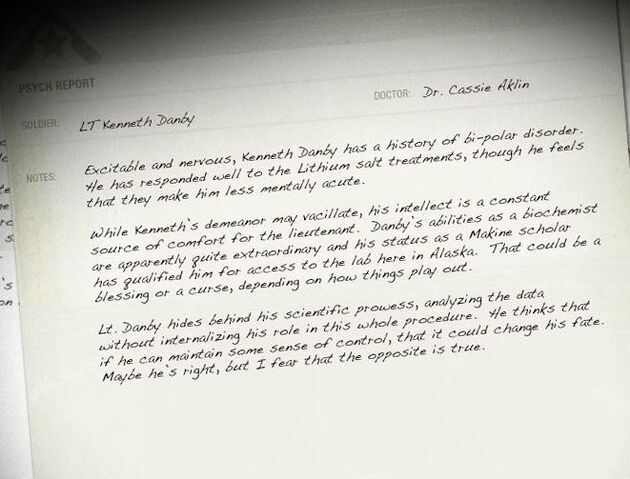 PSYCH REPORT
DOCTOR: Dr. Cassie Aklin
SOLDIER: LT Kenneth Danby
NOTES:
Excitable and nervous, Kenneth Danby has a history of bi-polar disorder.
He has responded well to the Lithium salt treatments, though he feels
that they make him less mentally acute.
While Kenneth's demeanor may vacillate, his intellect is a constant
source of comfort for the lieutenant. Danby's abilities as a biochemist
are apparently quite extraordinary and his status as a Makine scholar
has qualified him for access to the lab here in Alaska. That could be a
blessing or a curse, depending on how things play out.
Lt. Danby hides behind his scientific prowess, analyzing the data
without internalizing his role in this whole procedure. He thinks that
if he can maintain some sense of control, that it could change his fate.
Maybe he's right, but I fear that the opposite is true.